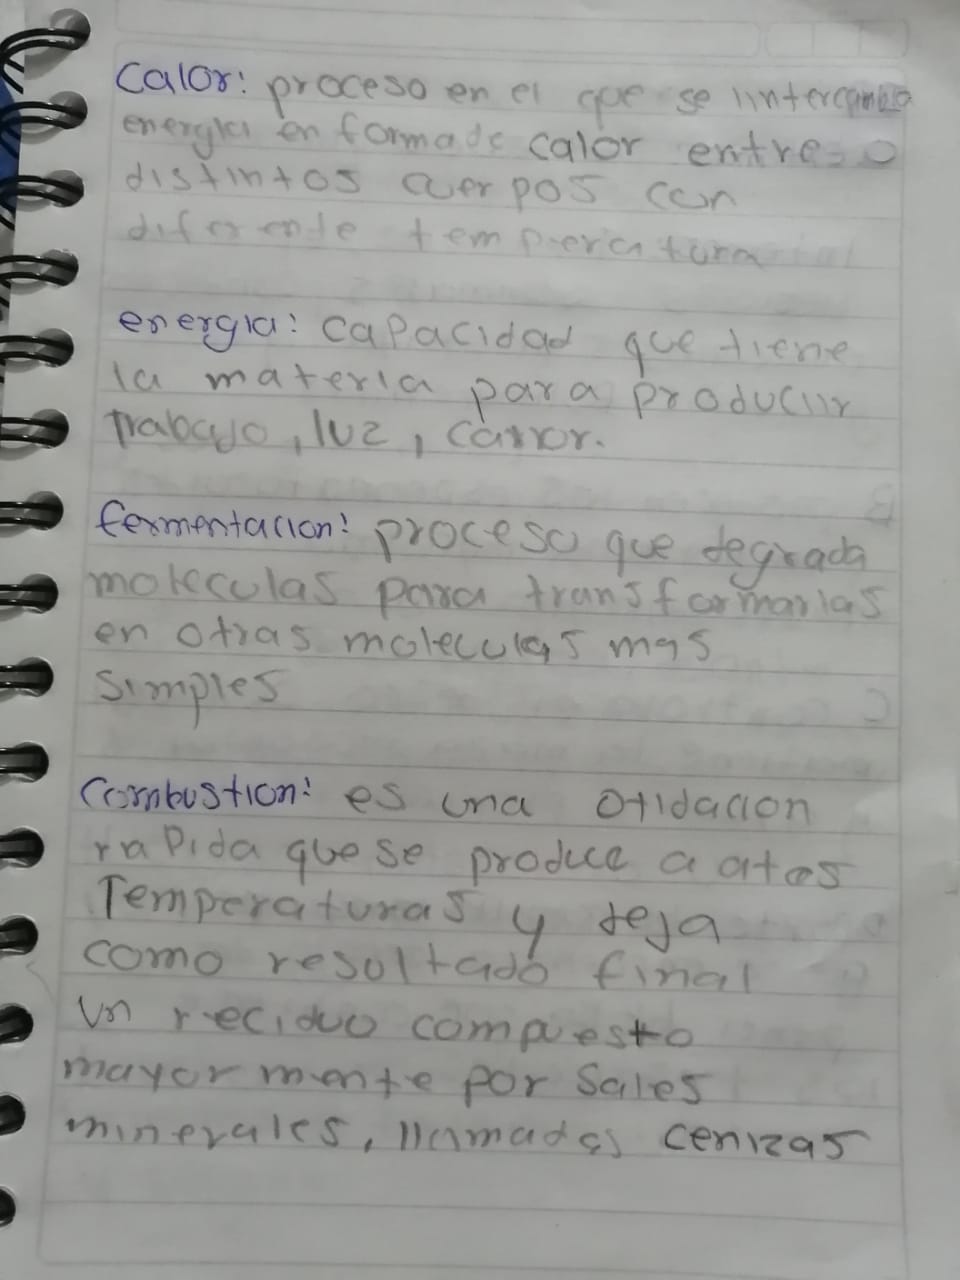 Calor: proceso en el que se iintercambia
energia en forma de calor entre o
distintos cuerpos con
diferente temperatura
energia: capacidad que tiene
la materia para produciir
trabajo, luz, carror.
fermentacion: proceso que degrada
moleculas para transformarlas
en otras moleculas mas
simples
Combustion: es una otidacion
rapida que se produce a atos
Temperaturas y deja
como resultado final
Un reciduo compuesto
mayor mente por Sales
minerales, llamadas cenizas